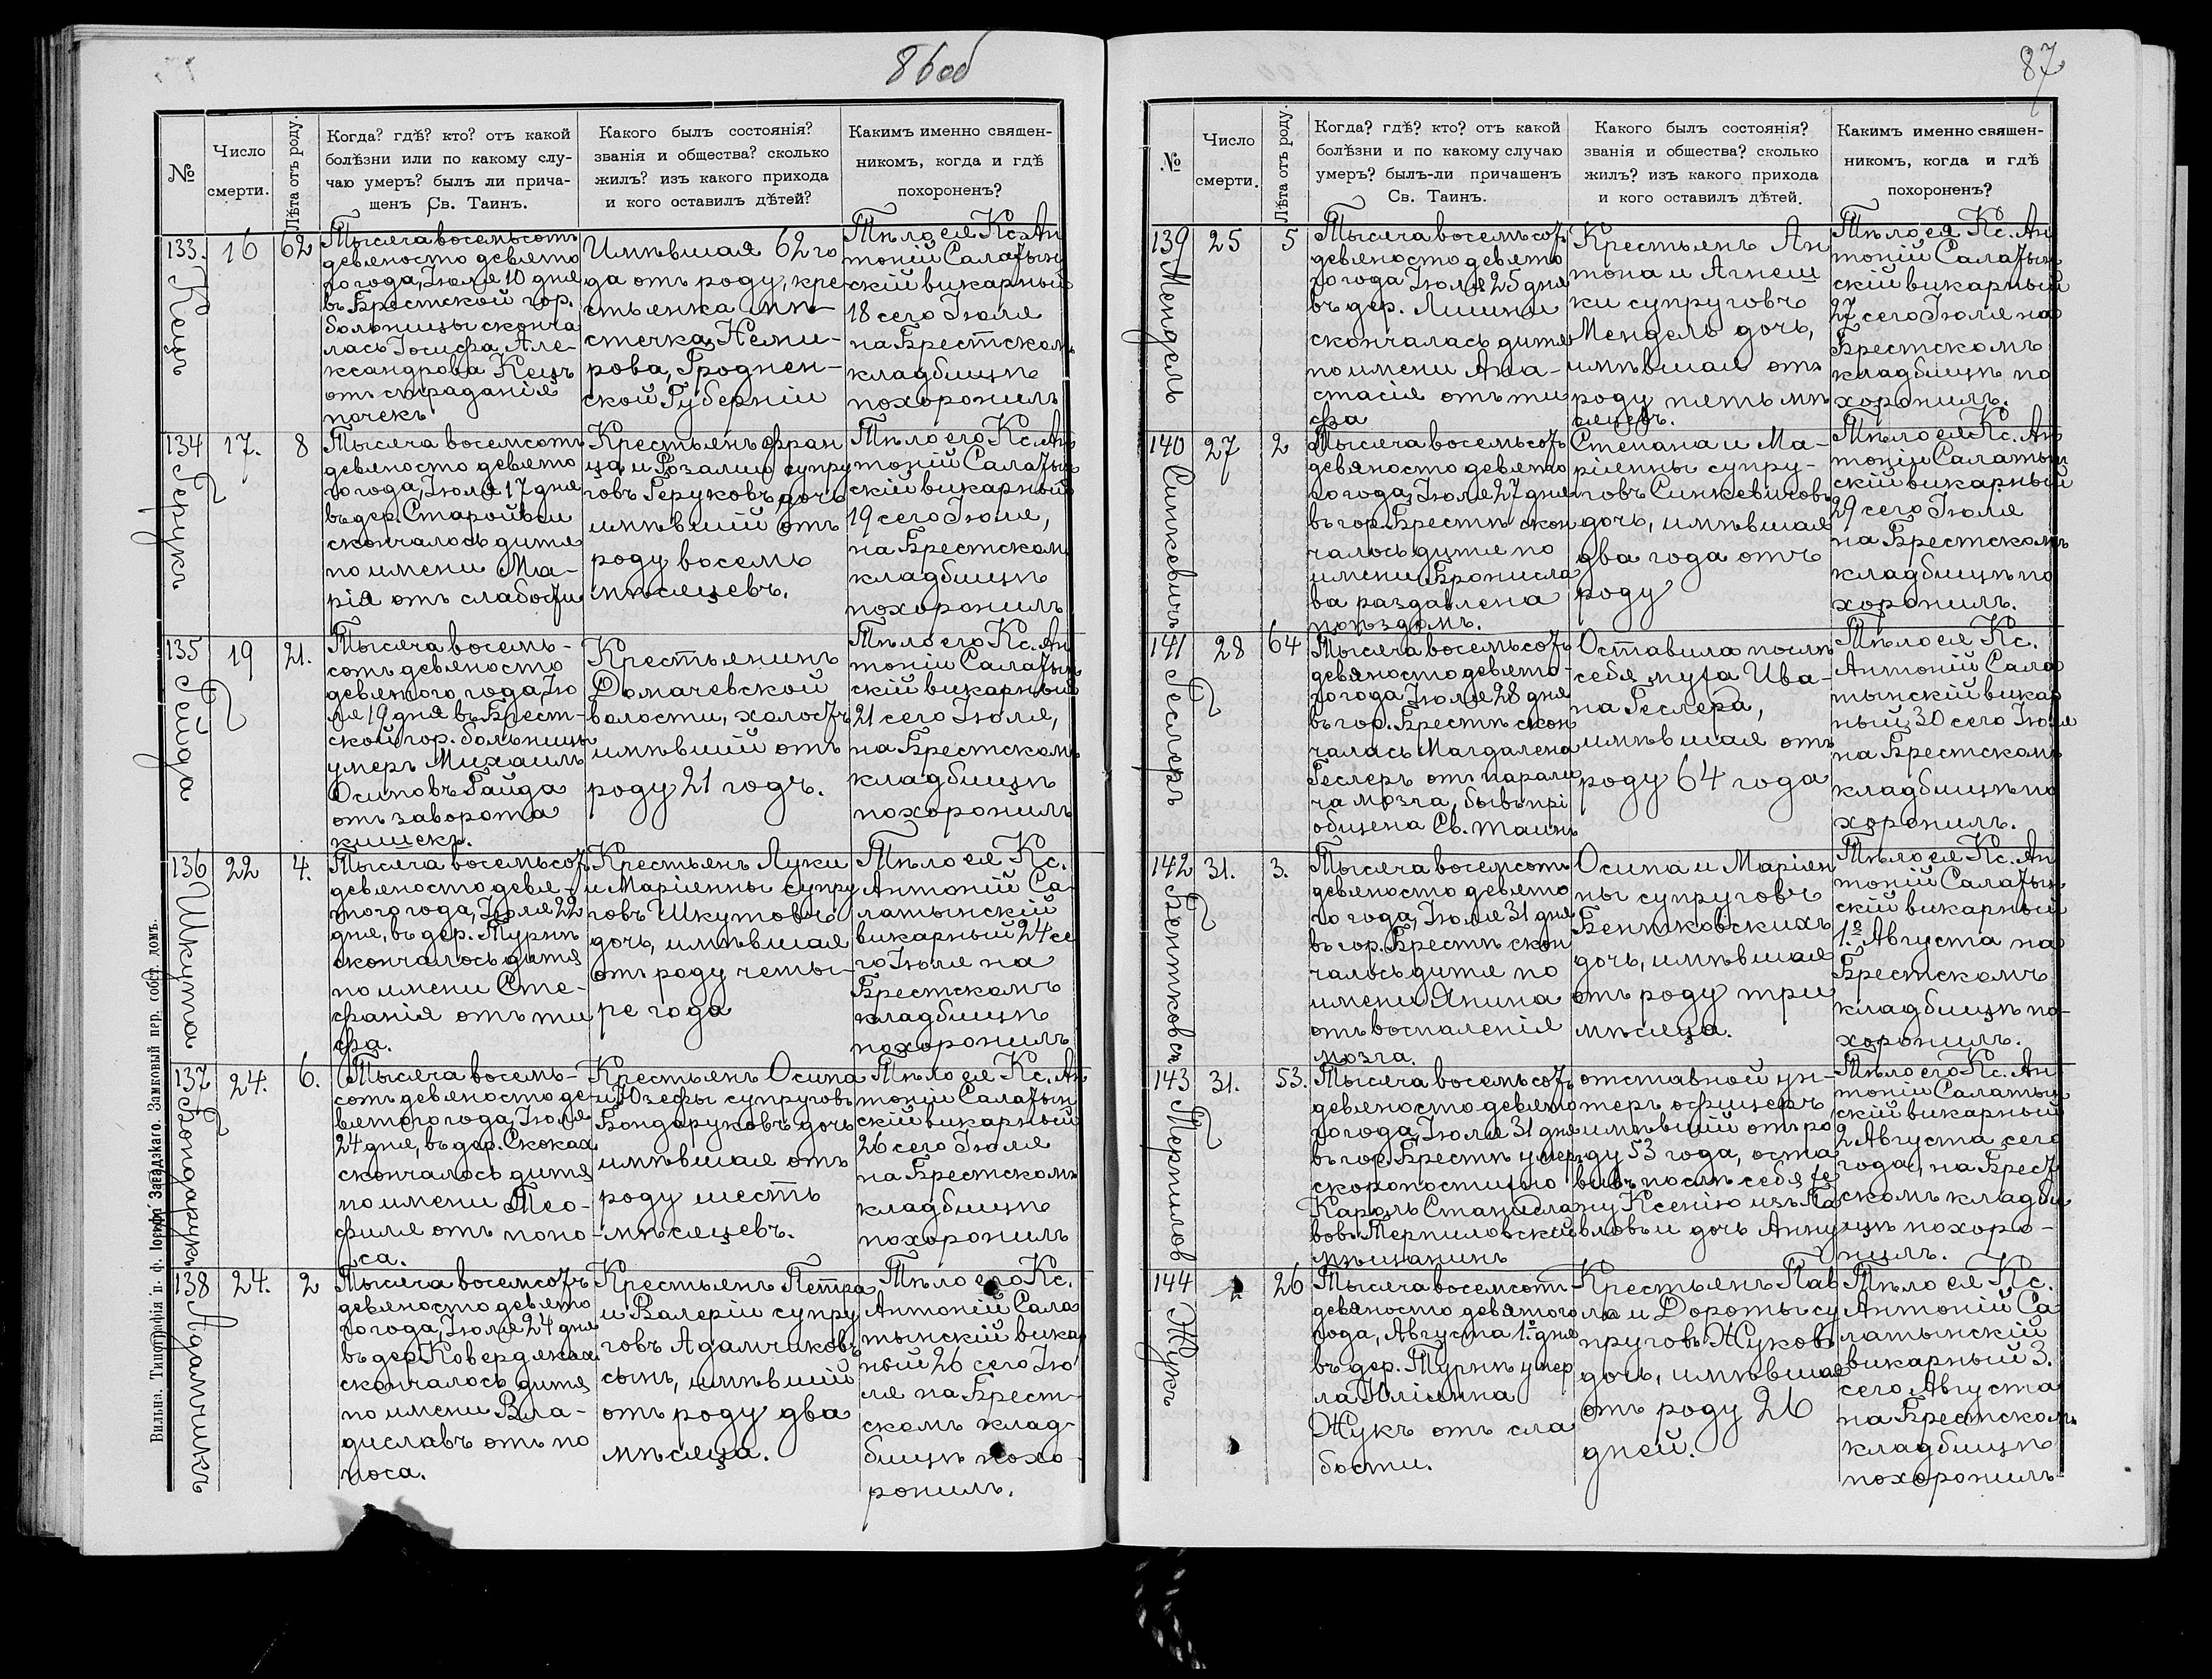 86об
№
Число
смерти.
Лѣта отъ роду.
Когда? гдѣ? кто? отъ какой
болѣзни или по какому слу-
чаю умеръ? былъ ли прича-
щенъ Св. Таинъ.
Какого былъ состоянія?
званія и общества? сколько
жилъ? изъ какого прихода
и кого оставилъ дѣтей?
Какимъ именно священ-
никомъ, когда и гдѣ
похороненъ?
133.
Кецъ
16
62
Тысяча восемьсотъ
девяносто девято
го года, Іюля 10 дня
въ Брестской гор.
больницы сконча
лась Іосифа Але-
ксандрова Кецъ
отъ страданія
почекъ
Имѣвшая 62 го
да отъ роду, кре
стьянка мѣ-
стечка Неми-
рова, Гроднен-
ской Губерніи
Тѣло ея Кс. Ан
тоній Салатын
скій викарный
18 сего Іюля
на Брестскомъ
кладбищѣ
похоронилъ
134
Герукъ
17.
8
Тысяча восемсотъ
девяносто девято
го года, Іюля 17 дня
въ дер. Старойвси
скончалось дитя
по имени Ма-
рія отъ слабости
Крестьянъ Фран
ца и Розалии супру
говъ Геруковъ дочь
имѣвшій отъ
роду восемь
мѣсяцевъ.
Тѣло его Кс. Ан
тоній Салатын
скій викарный
19 сего Іюля,
на Брестскомъ
кладбищѣ
похоронилъ
135
Гейда
19
21.
Тысяча восемь-
сотъ девяносто
девятого года, Ію
ля 19 дня въ Брест-
ской гор. больницы
умеръ Михаилъ
Осиповъ Гайда
отъ заворота
кишекъ.
Крестьянинъ
Домачевской
волости, холостъ
имѣвшій отъ
роду 21 годъ.
Тѣло его Кс. Ан
тоній Салатын
скій викарный
21 сего Іюля,
на Брестскомъ
кладбищѣ
похоронилъ
136
Шкута
22
4.
Тысяча восемьсотъ
девяносто девя-
того года, Іюля 22
дня, въ дер. Турнѣ
скончалось дитя
по имени Сте-
фанія отъ ти
фа.
Крестьянъ Луки
и Маріенны супру
говъ Шкутовъ
дочь, имѣвшая
отъ роду четы-
ре года
Тѣло ея Кс.
Антоній Са-
латынскій
викарный 24 се
го Іюля на
Брестскомъ
кладбищѣ
похоронилъ
137
Бондарукъ
24.
6.
Тысяча восемь-
сотъ девяносто де-
вятого года, Іюля
24 дня, въ дер. Скоках
скончалось дитя
по имени Тео-
филя отъ поно-
са.
Крестьянъ Осипа
и Юзефы супруговъ
Бондаруковъ дочь
имѣвшая отъ
роду шесть
мѣсяцевъ.
Тѣло ея Кс. Ан
тоній Салатын
скій викарный
26 сего Іюля
на Брестскомъ
кладбищѣ
похоронилъ
138
Адамчикъ
24.
2
Тысяча восемсотъ
девяносто девято
го года, Іюля 24 дня
въ дер. Ковердяках
скончалось дитя
по имени Вла-
диславъ отъ по
носа.
Крестьянъ Петра
и Валеріи супру
говъ Адамчиковъ
сынъ, имѣвшій
отъ роду два
мѣсяца.
Тѣло его Кс.
Антоній Сала
тынскій вика
ный 26 сего Ію
ля на Брест-
скомъ клад-
бищѣ похо-
ронилъ.
Вильна. Типографія п. ф. Іосифа Завадзкаго. Замковый пер. собст. домъ.
87
№
Число
смерти.
Лѣта отъ роду.
Когда? гдѣ? кто? отъ какой
болѣзни и по какому случаю
умеръ? былъ-ли причащенъ
Св. Таинъ.
Какого былъ состоянія?
званія и общества? сколько
жилъ? изъ какого прихода
и кого оставилъ дѣтей.
Какимъ именно священ-
никомъ, когда и гдѣ
похороненъ?
139
Мендель
25
5
Тысяча восемьсотъ
девяносто девято
го года Іюля 25 дня
въ дер. Лишни
скончалась дитя
по имени Ана-
стасія отъ ти
фа
Крестьянъ Ан
тона и Агнеш
ки супруговъ
Мендель дочь,
имѣвшая отъ
роду пять мѣ
сяцевъ.
Тѣло ея Кс. Ан
тоній Салатын
скій викарный
27 сего Іюля на
Брестскомъ
кладбищѣ по
хоронилъ.
140
Синкевичъ
27
2
Тысяча восемьсотъ
девяносто девято
го года, Іюля 27 дня
въ гор. Брестѣ скон
чалось дитя по
имени Бронисла
ва раздавлена
поѣздомъ.
Степана и Ма-
ріенны супру-
говъ Синкевичовъ
дочь, имѣвшая
два года отъ
роду
Тѣло ея Кс. Ан
тоній Салатын
скій викарный
29 сего Іюля
на Брестскомъ
кладбищѣ по
хоронилъ.
141
Геслеръ
28
64
Тысяча восемьсотъ
девяносто девято-
го года Іюля 28 дня
въ гор. Брестѣ скон
чалась Магдалена
Геслеръ отъ парали
ча мозга, бывъ прі
общена Св. таинъ
Оставила послѣ
себя мужа Ива-
на Геслера,
имѣвшая отъ
роду 64 года
Тѣло ея Кс.
Антоній Сала
тынскій викар
ный 30 сего Іюля
на Брестскомъ
кладбищѣ по
хоронилъ.
142
Бентковск
31.
3.
Тысяча восемсотъ
девяносто девято
го года, Іюля 31 дня
въ гор. Брестѣ скон
чалось дитя по
имени Янина
отъ воспаленія
мозга.
Осипа и Маріен
ны супруговъ
Бентковскихъ
дочь, имѣвшая
отъ роду три
мѣсяца.
Тѣло ея Кс. Ан
тоній Салатын
скій викарный
1го Августа на
Брестскомъ
кладбищѣ по-
хоронилъ.
143
Терпилов
31.
53.
Тысяча восемьсотъ
девяносто девято
го года, Іюля 31 дня
въ гор. Брестѣ умеръ
скоропостижно
Кароль Станисла
вовъ Терпиловскій
мѣщанинъ
отставной ун-
теръ офицеръ
имѣвшій отъ ро
ду 53 года, оста
вивъ послѣ себя же
ну Ксенію изъ Па
вловъ и дочь Анну
Тѣло его Кс. Ан
тоній Салатын
скій викарный
2 Августа сего
года, на Брест
скомъ кладби
щѣ похоро-
нилъ.
144
Жукъ
26
Тысяча восемсот-
девяносто девятого
года, Августа 1го дня
въ дер. Турнѣ умер
ла Юліанна
Жукъ отъ сла
бости.
Крестьянъ Пав
ла и Дороты су
пруговъ Жуковъ
дочь, имѣвшая
отъ роду 26
дней.
Тѣло ея Кс.
Антоній Са
латынскій
викарный 3.
сего Августа
на Брестскомъ
кладбищѣ
похоронилъ